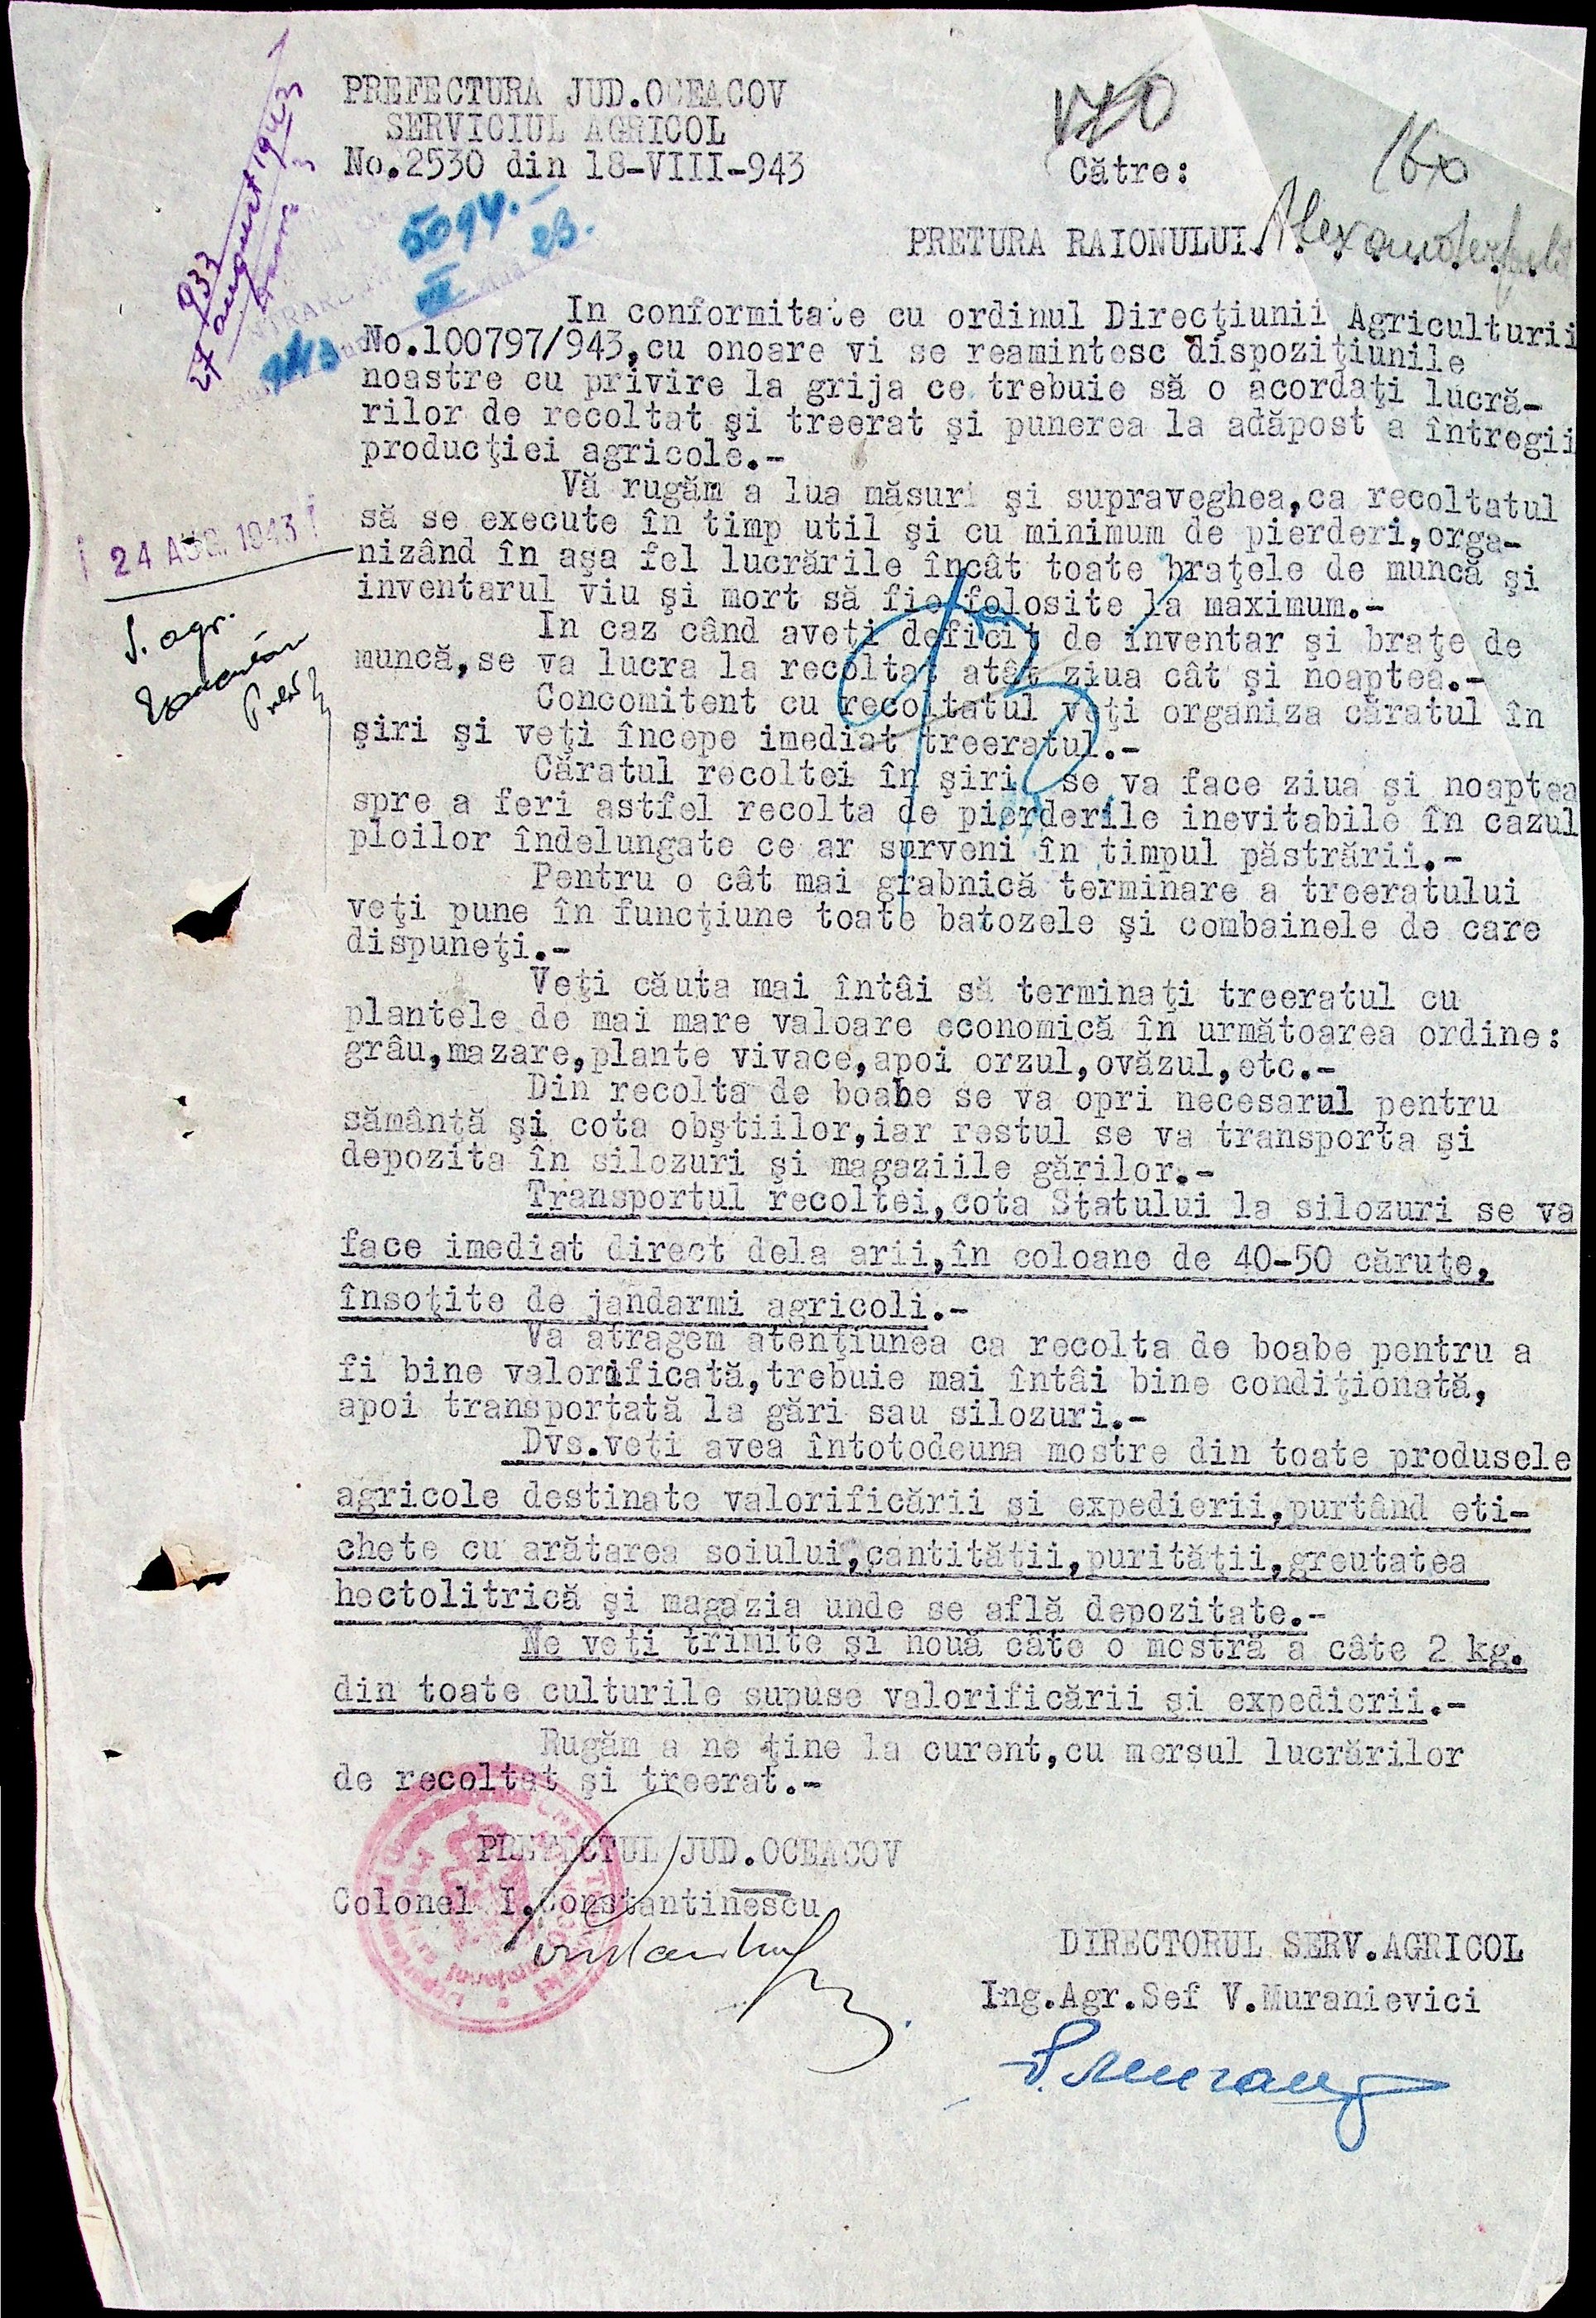 PREFECTURA JUD.OCEACOV
SERVICIUL AGRICOL
No.2530 din 18-VIII-943
Către:
160
PRETURA RAIONULUI. Alexanderfeld
933
27 august 1943
5094.-
VIII 23.
943
In conformitate cu ordinul Direcţiunii Agriculturii
No.100797/943,cu onoare vi se reamintesc dispoziţiunile
noastre cu privire la grija ce trebuie să o acordaţi lucră-
rilor de recoltat şi treerat şi punerea la adăpost a întregii
producţiei agricole.-
Vă rugăm a lua măsuri şi supraveghea,ca recoltatul
să se execute în timp util şi cu minimum de pierderi,orga-
nizând în aşa fel lucrările încât toate braţele de muncă şi
inventarul viu şi mort să fie folosite la maximum.-
24 AUG. 1943
S. agr.
In caz când aveţi deficit de inventar şi braţe de
muncă,se va lucra la recoltat atât ziua cât şi noaptea.-
Concomitent cu recoltatul veţi organiza căratul în
şiri şi veţi începe imediat treeratul.-
Căratul recoltei în şiri se va face ziua şi noaptea
spre a feri astfel recolta de pierderile inevitabile în cazul
ploilor îndelungate ce ar surveni în timpul păstrării.-
Pentru o cât mai grabnică terminare a treeratului
veţi pune în funcţiune toate batozele şi combainele de care
dispuneţi.-
Veţi căuta mai întâi să terminaţi treeratul cu
plantele de mai mare valoare economică în următoarea ordine:
grâu,mazare,plante vivace,apoi orzul,ovăzul,etc.-
Din recolta de boabe se va opri necesarul pentru
sămânţă şi cota obştiilor,iar restul se va transporta şi
depozita în silozuri şi magaziile gărilor.-
Transportul recoltei,cota Statului la silozuri se va
face imediat direct dela arii,în coloane de 40-50 căruţe,
însoţite de jandarmi agricoli.-
Va atragem atenţiunea ca recolta de boabe pentru a
fi bine valorificată,trebuie mai întâi bine condiţionată,
apoi transportată la gări sau silozuri.-
Dvs.veţi avea întotodeuna mostre din toate produsele
agricole destinate valorificării şi expedierii,purtând eti-
chete cu arătarea soiului,cantităţii,purităţii,greutatea
hectolitrică şi magazia unde se află depozitate.-
Ne veţi trimite şi nouă câte o mostră a câte 2 kg.
din toate culturile supuse valorificării şi expedierii.-
Rugăm a ne ţine la curent,cu mersul lucrărilor
de recoltat şi treerat.-
PREFECTUL JUD.OCEACOV
Colonel I.Constantinescu
DIRECTORUL SERV.AGRICOL
Ing.Agr.Sef V.Muranievici